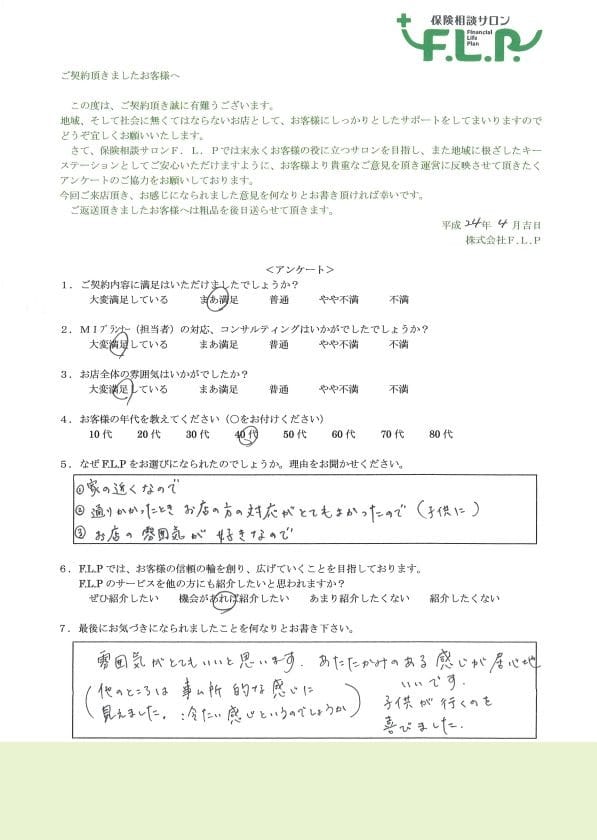 保険相談サロン
F.L.P.
Financial
Life
Plan
ご契約頂きましたお客様へ
この度は、ご契約頂き誠に有難うございます。
地域、そして社会に無くてはならないお店として、お客様にしっかりとしたサポートをしてまいりますので
どうぞ宜しくお願いいたします。
さて、保険相談サロンF．L．Pでは末永くお客様の役に立つサロンを目指し、また地域に根ざしたキー
ステーションとしてご安心いただけますように、お客様より貴重なご意見を頂き運営に反映させて頂きたく
アンケートのご協力をお願いしております。
今回ご来店頂き、お感じになられました意見を何なりとお書き頂ければ幸いです。
ご返送頂きましたお客様へは粗品を後日送らせて頂きます。
平成 24年 4 月吉日
株式会社F.L.P
＜アンケート＞
１．ご契約内容に満足はいただけましたでしょうか？
大変満足している まあ満足 普通 やや不満 不満
２．ＭＩプランナー（担当者）の対応、コンサルティングはいかがでしたでしょうか？
大変満足している まあ満足 普通 やや不満 不満
３．お店全体の雰囲気はいかがでしたか？
大変満足している まあ満足 普通 やや不満 不満
４．お客様の年代を教えてください（○をお付けください）
10代 20代 30代 40代 50代 60代 70代 80代
５．なぜF.L.Pをお選びになられたのでしょうか。理由をお聞かせください。
①家の近くなので
②通りかかったとき お店の方の対応がとてもよかったので（子供に）
③お店の雰囲気が好きなので
６．F.L.Pでは、お客様の信頼の輪を創り、広げていくことを目指しております。
F.L.Pのサービスを他の方にも紹介したいと思われますか？
ぜひ紹介したい 機会があれば紹介したい あまり紹介したくない 紹介したくない
７．最後にお気づきになられましたことを何なりとお書き下さい。
雰囲気がとてもいいと思います。あたたかみのある感じが居心地
いいです。
（他のところは事ム所的な感じに
見えました。：冷たい感じというのでしょうか）
子供が行くのを
喜びました。